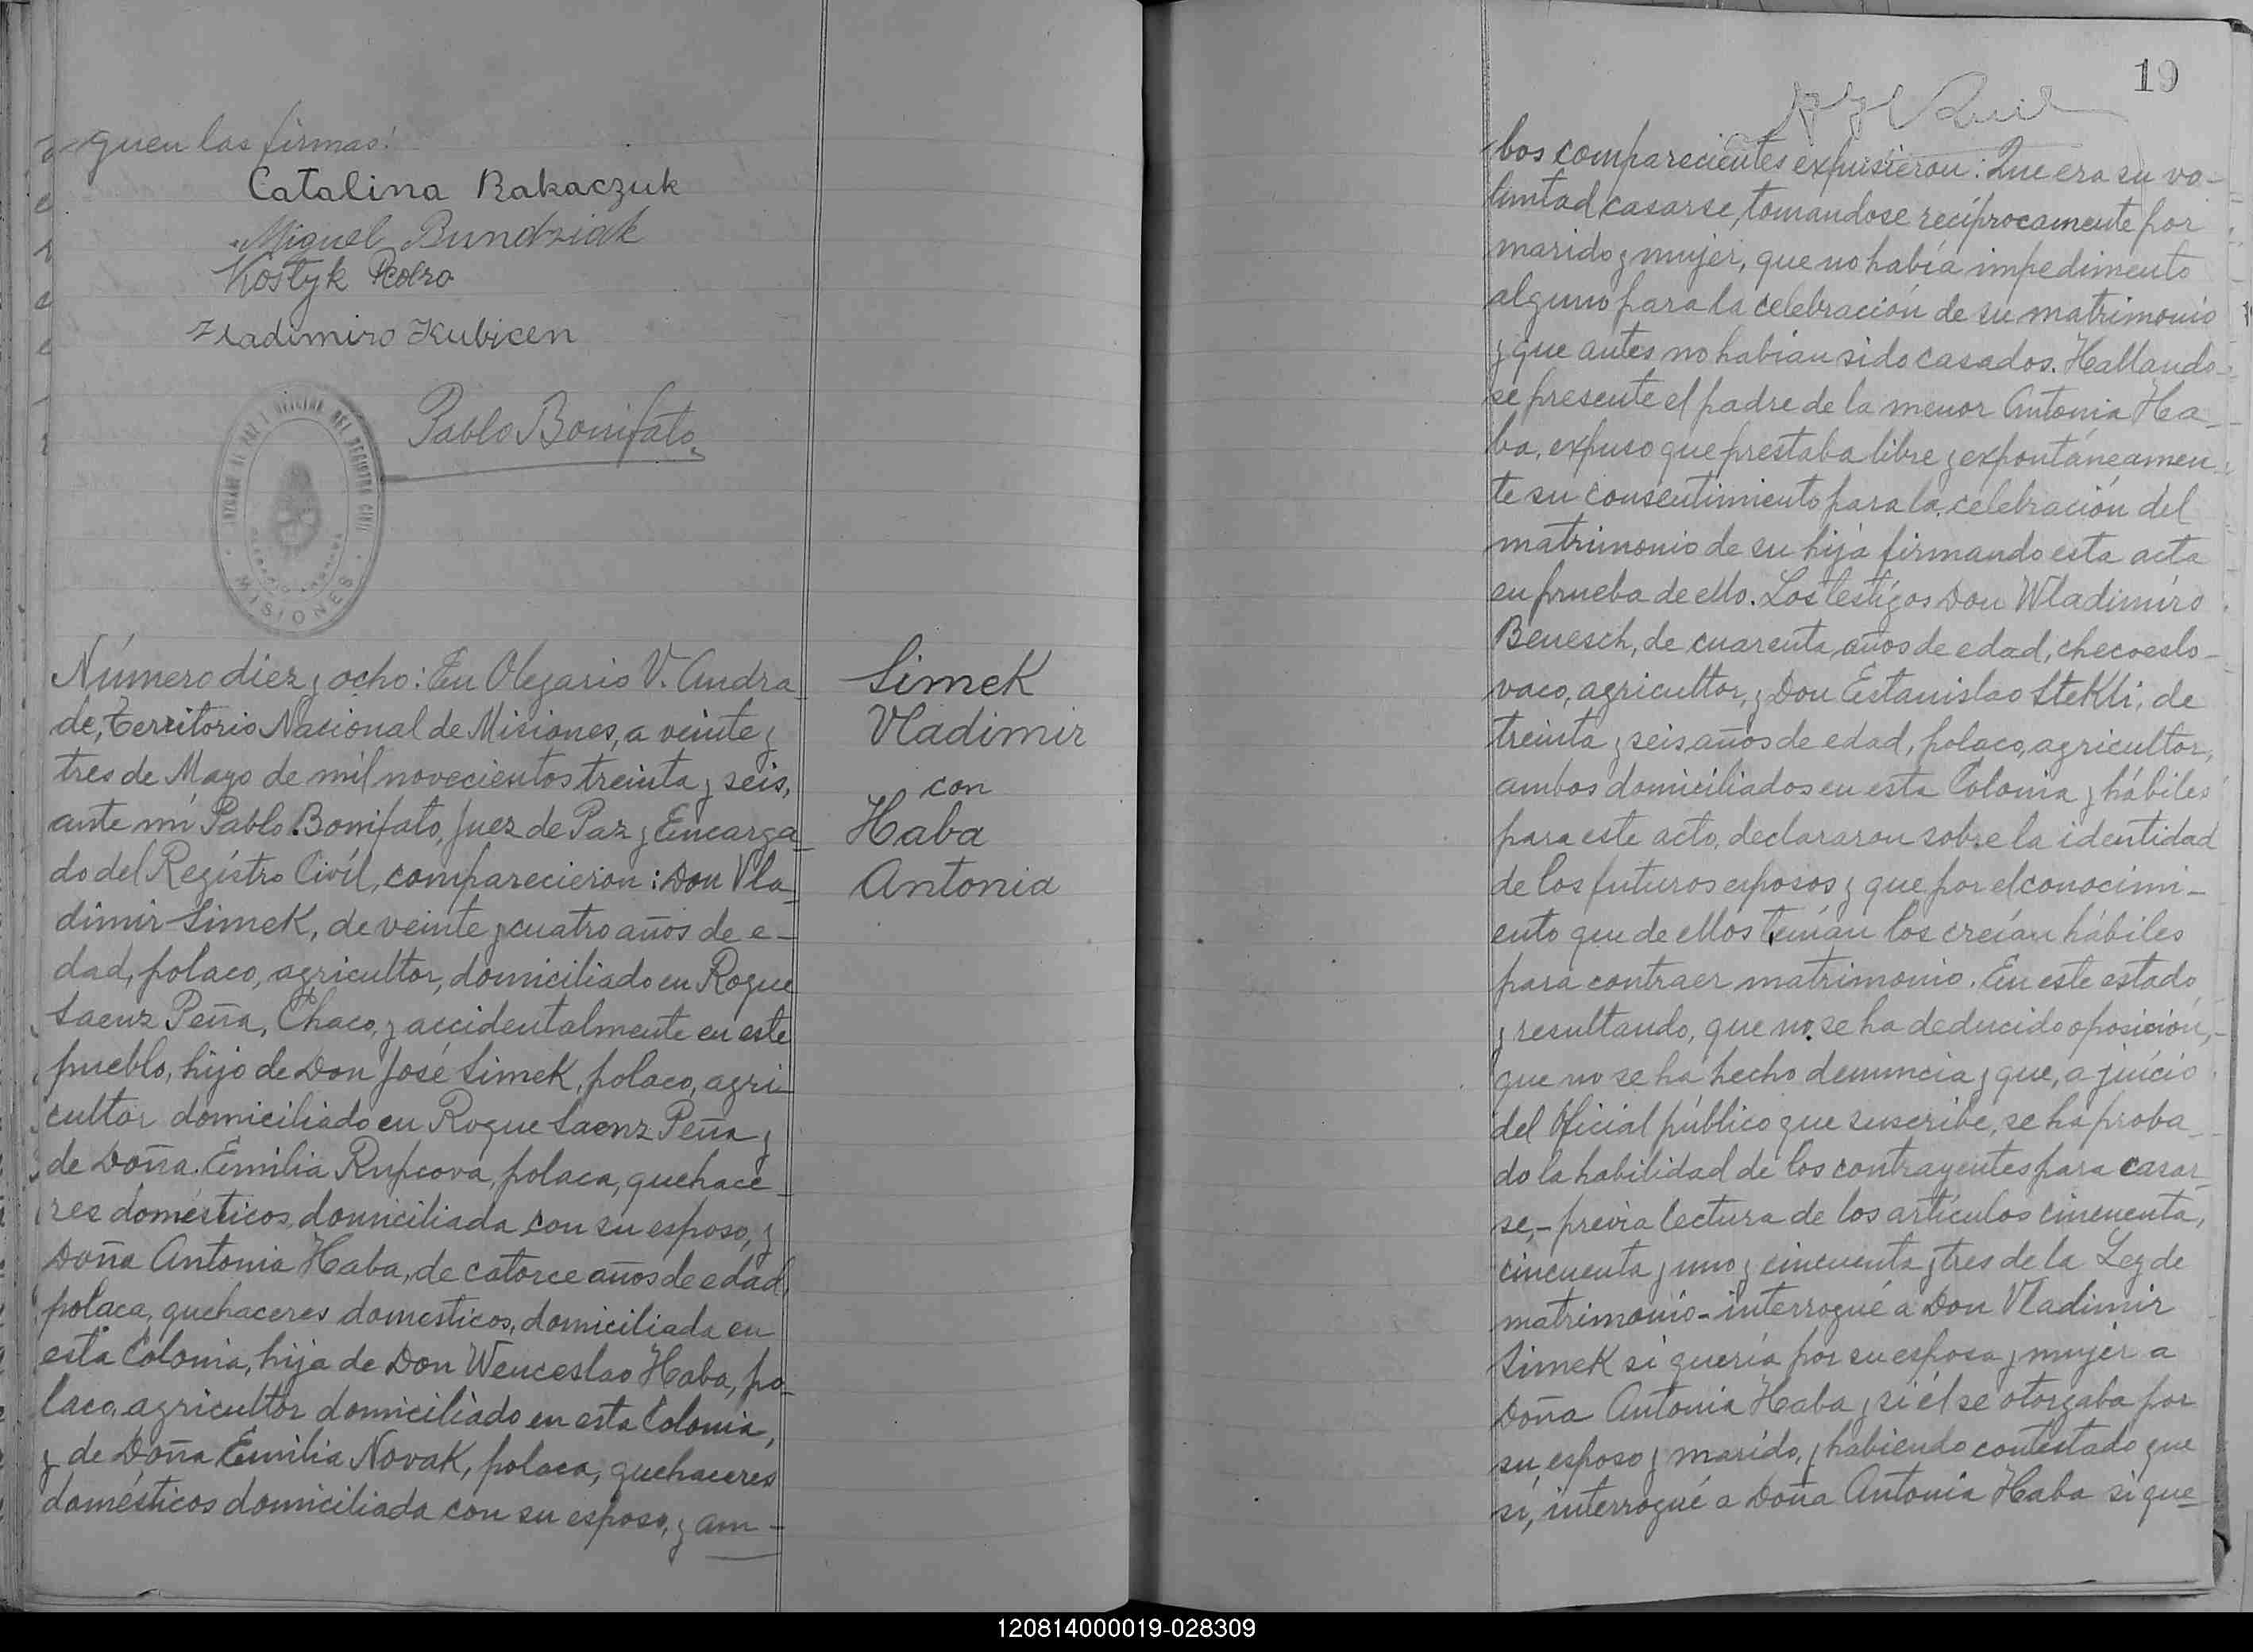 guen las firmas:
Catalina Bakaczuk
Miguel Bundziak
Kostyk Pedro
Wladimiro Kubicen
Pablo Bonifato
JUZGADO DE PAZ Y OFICINA DEL REGISTRO CIVIL
MISIONES
Número diez y ocho: En Olegario V. Andra-
de, Territorio Nacional de Misiones, a veinte y
tres de Mayo de mil novecientos treinta y seis,
ante mí Pablo Bonifato, Juez de Paz y Encarga-
do del Regístro Civíl, comparecieron: Don Vla-
dimir Simek, de veinte y cuatro años de e-
dad, polaco, agricultor, domiciliado en Roque
Saenz Peña, Chaco, y accidentalmente en este
pueblo, hijo de Don José Simek, polaco, agri-
cultor domiciliado en Roque Saenz Peña y
de Doña Emilia Rupcova, polaca, quehace-
res domésticos, domiciliada con su esposo, y
Doña Antonia Haba, de catorce años de edad,
polaca, quehaceres domesticos, domiciliada en
esta Colonia, hija de Don Wenceslao Haba, po-
laco, agricultor domiciliado en esta Colonia,
y de Doña Emilia Novak, polaca, quehaceres
domésticos domiciliada con su esposo, y am-
Simek
Vladimir
con
Haba
Antonia
19
bos comparecientes expusieron: Que era su vo-
luntad casarse, tomandose recíprocamente por
marido y mujer, que no había impedimento
alguno para la celebración de su matrimonio
y que antes no habian sido casados. Hallando-
se presente el padre de la menor Antonia Ha-
ba, expuso que prestaba libre y expontáneamen-
te su consentimiento para la celebración del
matrimonio de su hija firmando esta acta
en prueba de ello. Los testigos Don Wladimiro
Benesch, de cuarenta años de edad, checoeslo-
vaco, agricultor, y Don Estanislao Stekli, de
treinta y seis años de edad, polaco, agricultor,
ambos domiciliados en esta Colonia y hábiles
para este acto, declararon sobre la identidad
de los futuros esposos y que por el conocimi-
ento que de ellos tenían los creían hábiles
para contraer matrimonio. En este estado
y resultando, que no se ha deducido oposición,-
que no se ha hecho denuncia y que, a juício
del Oficial público que suscribe, se ha proba-
do la habilidad de los contrayentes para casar-
se,- previa lectura de los artículos cincuenta,
cincuenta y uno y cincuenta y tres de la Ley de
matrimonio- interrogué a Don Vladimir
Simek si quería por su esposa y mujer a
Doña Antonia Haba y si él se otorgaba por
su esposo y marido, y habiendo contestado que
sí, interrogué a Doña Antonia Haba si que-
120814000019-028309